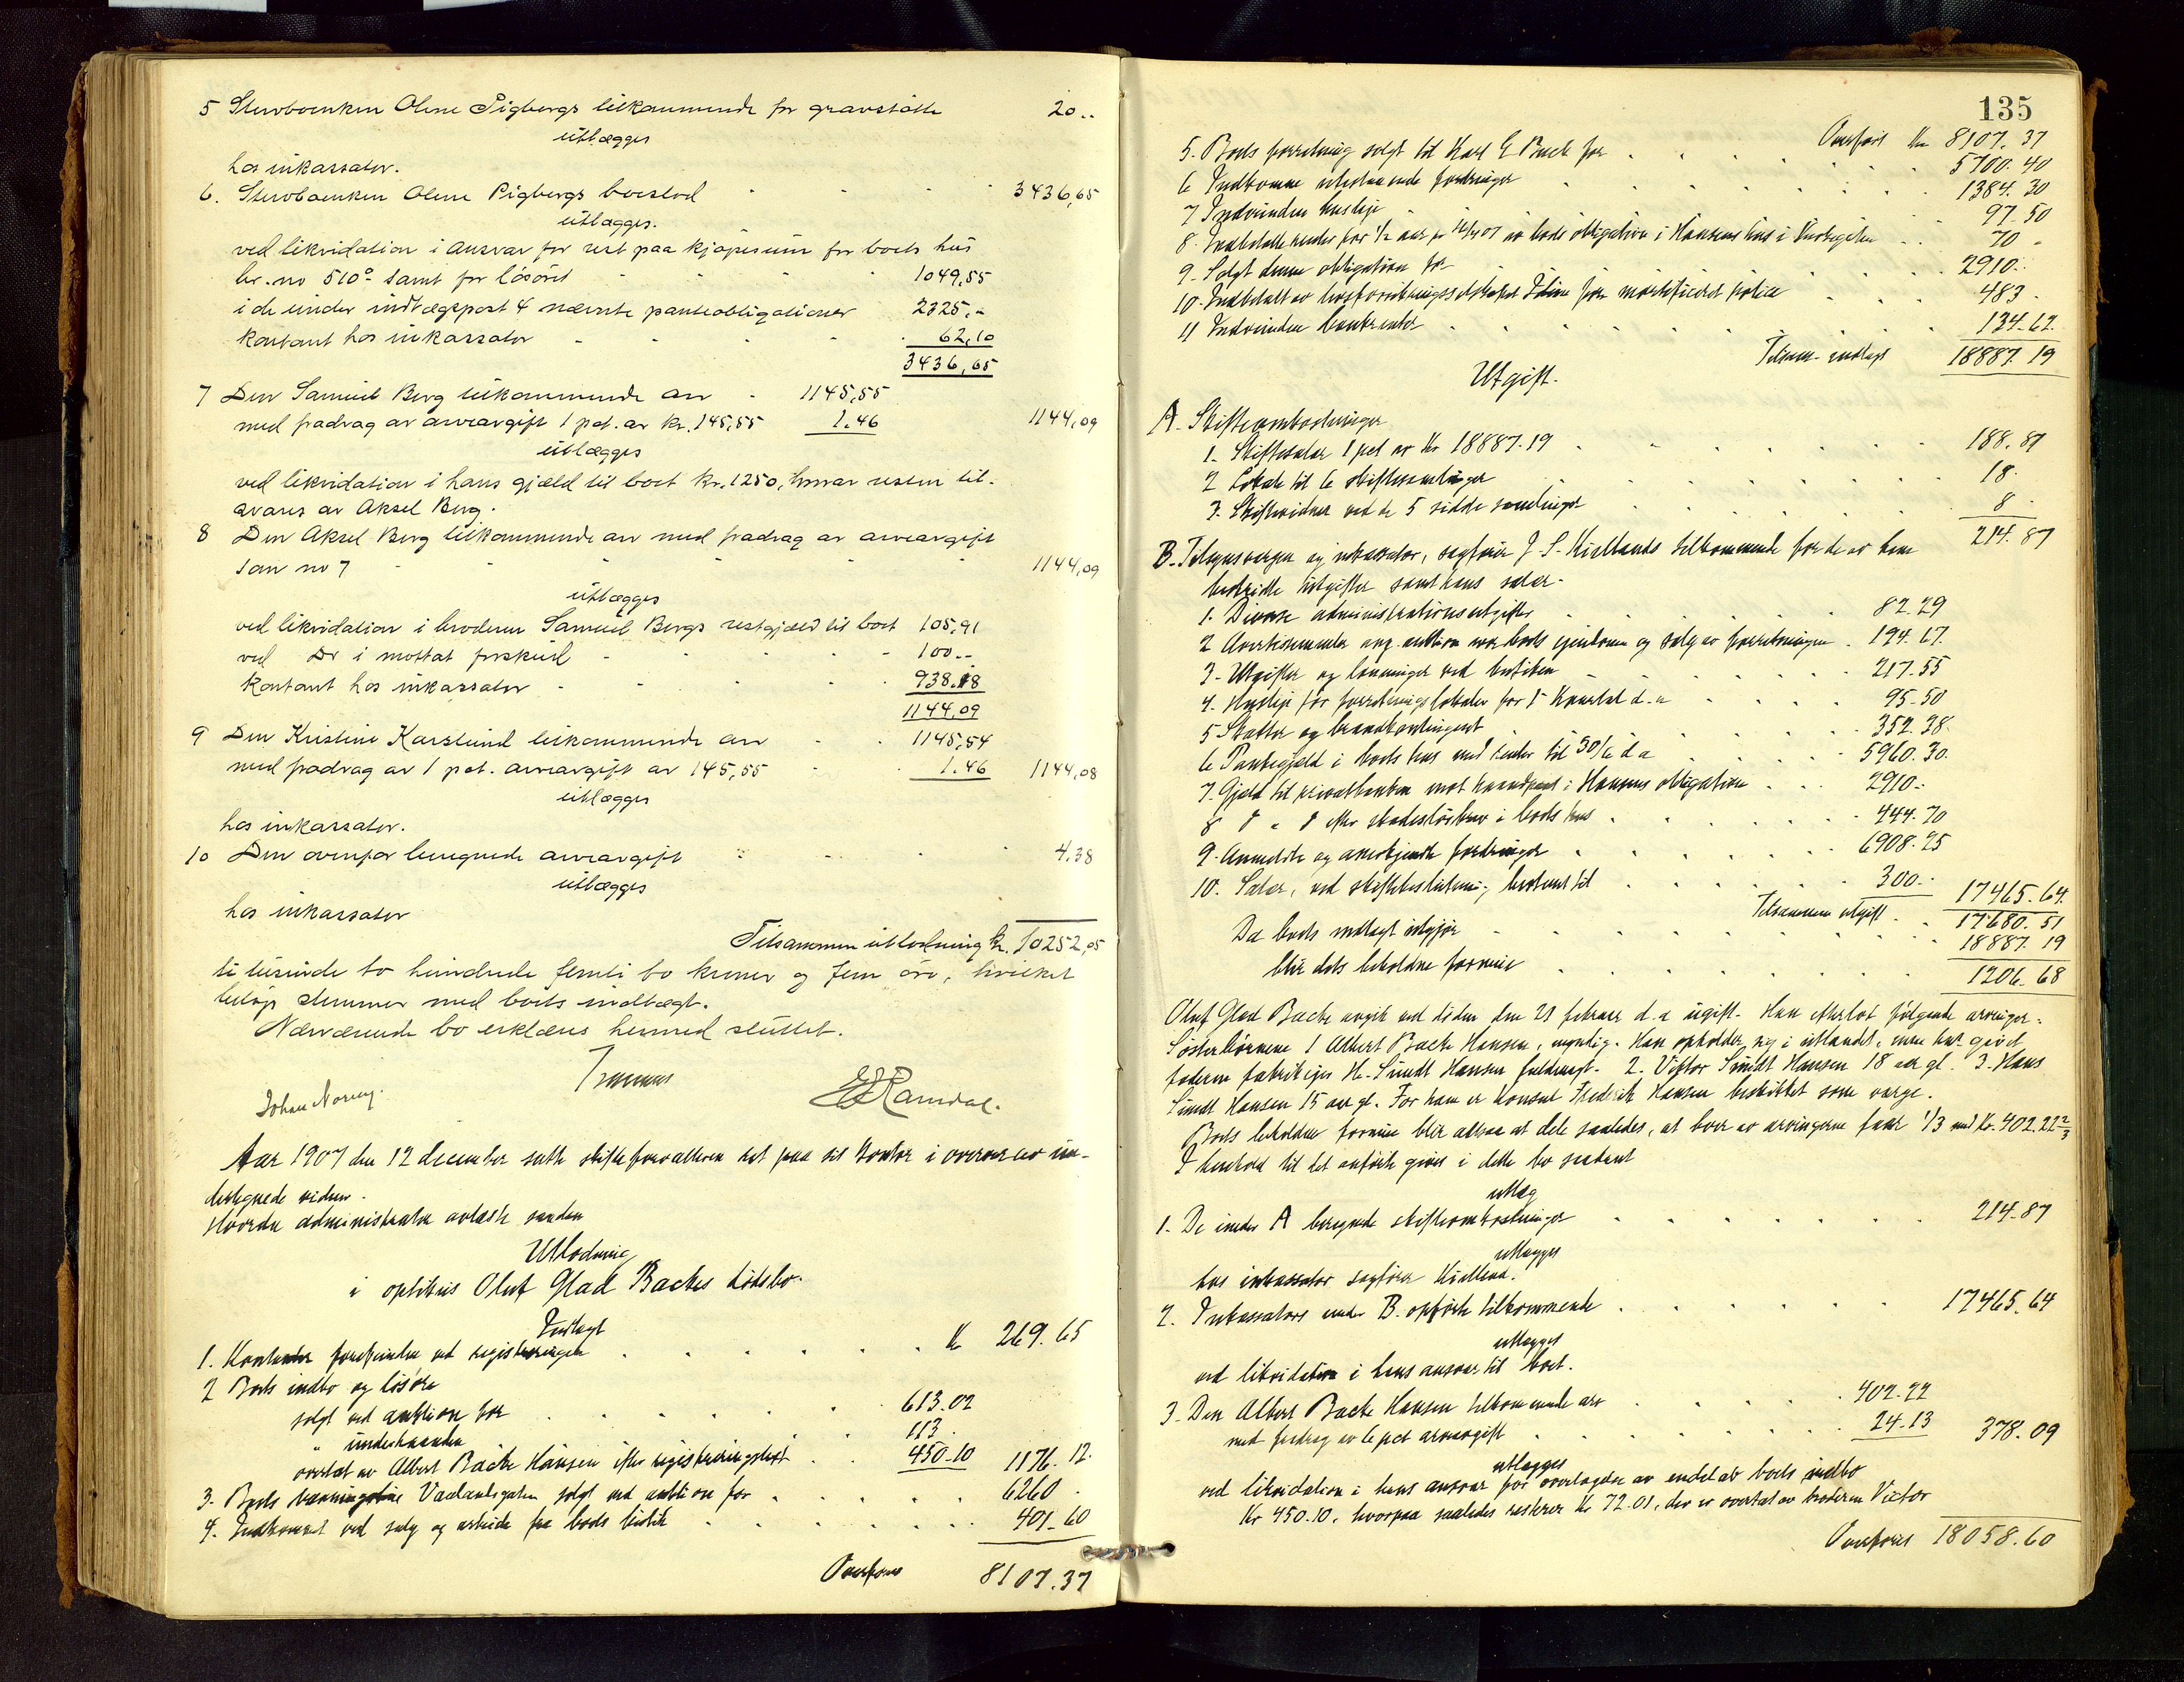 5 Stervboenken Olene Sigbergs tilkommende for gravstätte 20..
utlægges
hos inkassator.
6. Stervboenken Olene Sigbergs boeslod 3436,65
utlægges.
ved likvidation i ansvar for rest paa kjøpesum for boets hus
br. no 510ᵃ samt for løsøret 1049,55
i de under indtægtspost 4 nævnte panteobligationer 2325.-
Kontant hos inkassator 62,10
3436,65
7 Den Samuel Berg tilkommende arv 1145,55
med fradrag av arveavgift 1 pct. av kr. 145,55 1.46 1144,09
utlægges
ved likvidation i hans gjæld til boet kr. 1250, hvorav resten til-
svares av Aksel Berg.
8 Den Aksel Berg tilkommende arv med fradrag av arveavgift
som no 7 1144,09
utlægges
ved likvidation i broderen Samuel Bergs restgjæld til boet 105,91
ved Do i mottat forskud 100.-
Kontant hos inkassator 938.18
1144,09
9 Den Kristine Karslund tilkommende arv 1145,54
med fradrag av 1 pct. arveavgift av 145,55 1.46 1144,08
utlægges
hos inkassator.
10 Den ovenfor beregnede arveavgift 4.38
utlægges
hos inkassator
Tilsammen utlodning kr. 10252,05
ti tusinde to hundrede femti to kroner og fem öre, hvilket
beløp stemmer med boets indtægt.
Nærværende bo erklæres hermed sluttet.
Johan Noreng. E Ramdal.
Aar 1907 den 12 december satte skifteforvalteren ret paa sit kontor i overvær av un-
dertegnede vidner.
Hvorda administrator avlæste saadan
Utlodning
i optikus Oluf Glad Backes dødsbo.
Indtægt
1. Kontanter forefundne ved registreringen Kr 269.65
2 Boets indbo og løsøre
solgt ved auktion for 613.02
" underhaanden 113.
overtat av Albert Backe Hansen efter registreringstakst 450.10 1176.12.
3. Boets Vaalandsgaten solgt ved auktion for 6260.
4. Indkommet ved salg og arbeide fra boets butik 401.60
Overføres 8107.37
135
Overført Kr 8107.37
5. Boets forretning solgt til Karl E Buck for 5700.40
6 Indkomne utestaaende fordringer 1384.30
7 Indvunden husleje 97.50
8. Indbetalte renter for 1/2 aar av boets obligation i Hansens hus i 70.
9. Solgt denne obligation for 2910..
10. Indbetalt av livsforsikringsselskapet Idun for mortificeret police 483.
11 Indvunden bankrenter 134.62.
Tilsam. indtægt 18887.19
Utgift.
A. Skifteomkostninger
1. Skiftesalær 1 pct av Kr 18887.19 188.87
2 Lokale til 6 skiftesamlinger 18.
3. Skiftevidner ved de 5 sidste samlinger 8.
214.87
B. Tilsynsvergen og inkassator, sagfører J. S. Kiellands tilkommende for de av ham
bestridte utgifter samt hans salær.
1. Diverse administrationsutgifter 82.29
2 Avertissementer ang. auktion over boets ejendom og salg av forretningen 194.67.
3. Utgifter og lønninger ved butiken 217.55
4. Husleje for forretningslokaler for 1' kvartal d.a 95.50
5 Skatter og brandkontingent 352.38.
6 Pantegjæld i boets hus med renter til 30/6 d.a 5960.30.
7. Gjæld til privatbanken mot haandpant i Hansens obligation 2910..
8 " " " efter skadesløsbrev i boets hus 444.70
9. Anmeldte og anerkjendte fordringer 6908.25
10. Salær, ved skiftebeslutning bestemt til 300.- 17465.64.
Tilsammen utgift 17680.51
Da boets indtægt utgjør 18887.19
blir dets beholdne formue 1206.68
Oluf Glad Backe avgik ved døden den 21 februar d.a ugift. Han efterlot følgende arvinger:
Søsterbørnene 1 Albert Backe Hansen, myndig. Han opholder sig i utlandet, men har givet
faderen fabrikejer H. Sundt Hansen fuldmagt. 2. Viktor Sundt Hansen 18 aar gl. 3. Hans
Sundt Hansen 15 aar gl. For ham er konsul Frederik Hansen beskikket som verge.
Boets beholdne formue blir altsaa at dele saaledes, at hver av arvingerne faar 1/3 med Kr. 402.22 2/3
I henhold til det anførte gives i dette bo saadant
utlæg
1. De under A beregnede skifteomkostninger 214.87
utlægges
hos inkassator sagfører Kielland.
2. Inkassators under B. opførte tilkommende 17465.64
utlægges
ved likvidation i hans ansvar til boet.
3. Den Albert Backe Hansen tilkommende arv 402.22
med fradrag av 6 pct arveavgift 24.13 378.09
utlægges
ved likvidation i hans ansvar for overtagelse av endel av boets indbo
Kr 450.10, hvorpaa saaledes resterer Kr 72.01, der er overtat av broderen Victor
Overføres 18058.60